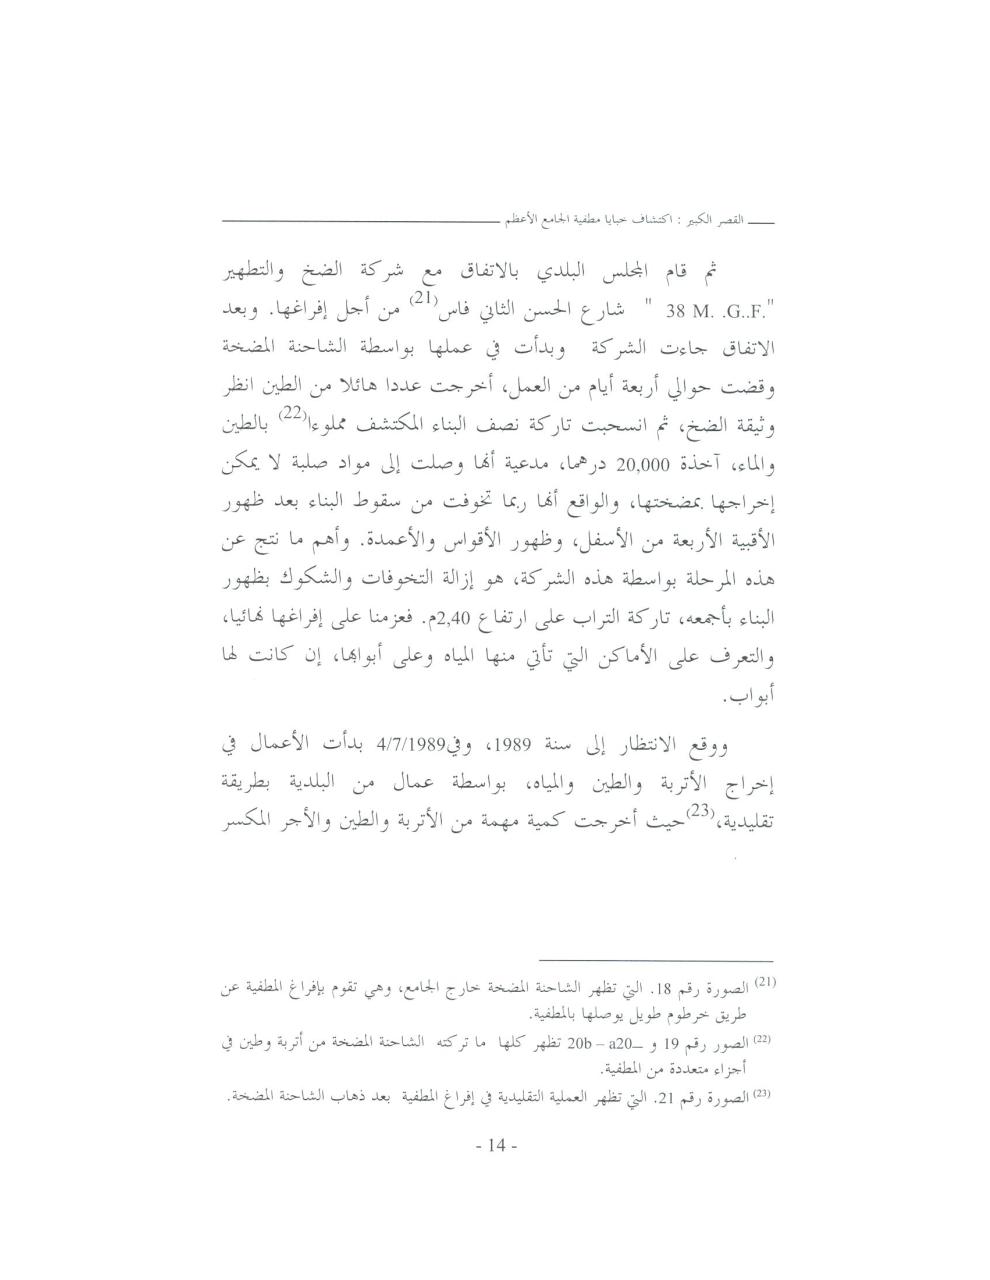 القصر الكبير : اكتشاف خبايا مطفية الجامع الأعظم
ثم قام المجلس البلدي بالاتفاق مع شركة الضخ والتطهير
".38 M. .G..F " شارع الحسن الثاني فاس(21) من أجل إفراغها. وبعد
الاتفاق جاءت الشركة وبدأت في عملها بواسطة الشاحنة المضخة
وقضت حوالي أربعة أيام من العمل، أخرجت عددا هائلا من الطين انظر
وثيقة الضخ، ثم انسحبت تاركة نصف البناء المكتشف مملوءا(22) بالطين
والماء، آخذة 20,000 درهما، مدعية أنها وصلت إلى مواد صلبة لا يمكن
إخراجها بمضختها، والواقع أنها ربما تخوفت من سقوط البناء بعد ظهور
الأقبية الأربعة من الأسفل، وظهور الأقواس والأعمدة. وأهم ما نتج عن
هذه المرحلة بواسطة هذه الشركة، هو إزالة التخوفات والشكوك بظهور
البناء بأجمعه، تاركة التراب على ارتفاع 2,40م. فعزمنا على إفراغها نهائيا،
والتعرف على الأماكن التي تأتي منها المياه وعلى أبوابها، إن كانت لها
أبواب.
ووقع الانتظار إلى سنة 1989، وفي4/7/1989 بدأت الأعمال في
إخراج الأتربة والطين والمياه، بواسطة عمال من البلدية بطريقة
تقليدية،(23)حيث أخرجت كمية مهمة من الأتربة والطين والأجر المكسر
(21) الصورة رقم 18. التي تظهر الشاحنة المضخة خارج الجامع، وهي تقوم بإفراغ المطفية عن
طريق خرطوم طويل يوصلها بالمطفية.
(22) الصور رقم 19 و –20b – a20 تظهر كلها ما تركته الشاحنة المضخة من أتربة وطين في
أجزاء متعددة من المطفية.
(23) الصورة رقم 21. التي تظهر العملية التقليدية في إفراغ المطفية بعد ذهاب الشاحنة المضخة.
- 14 -